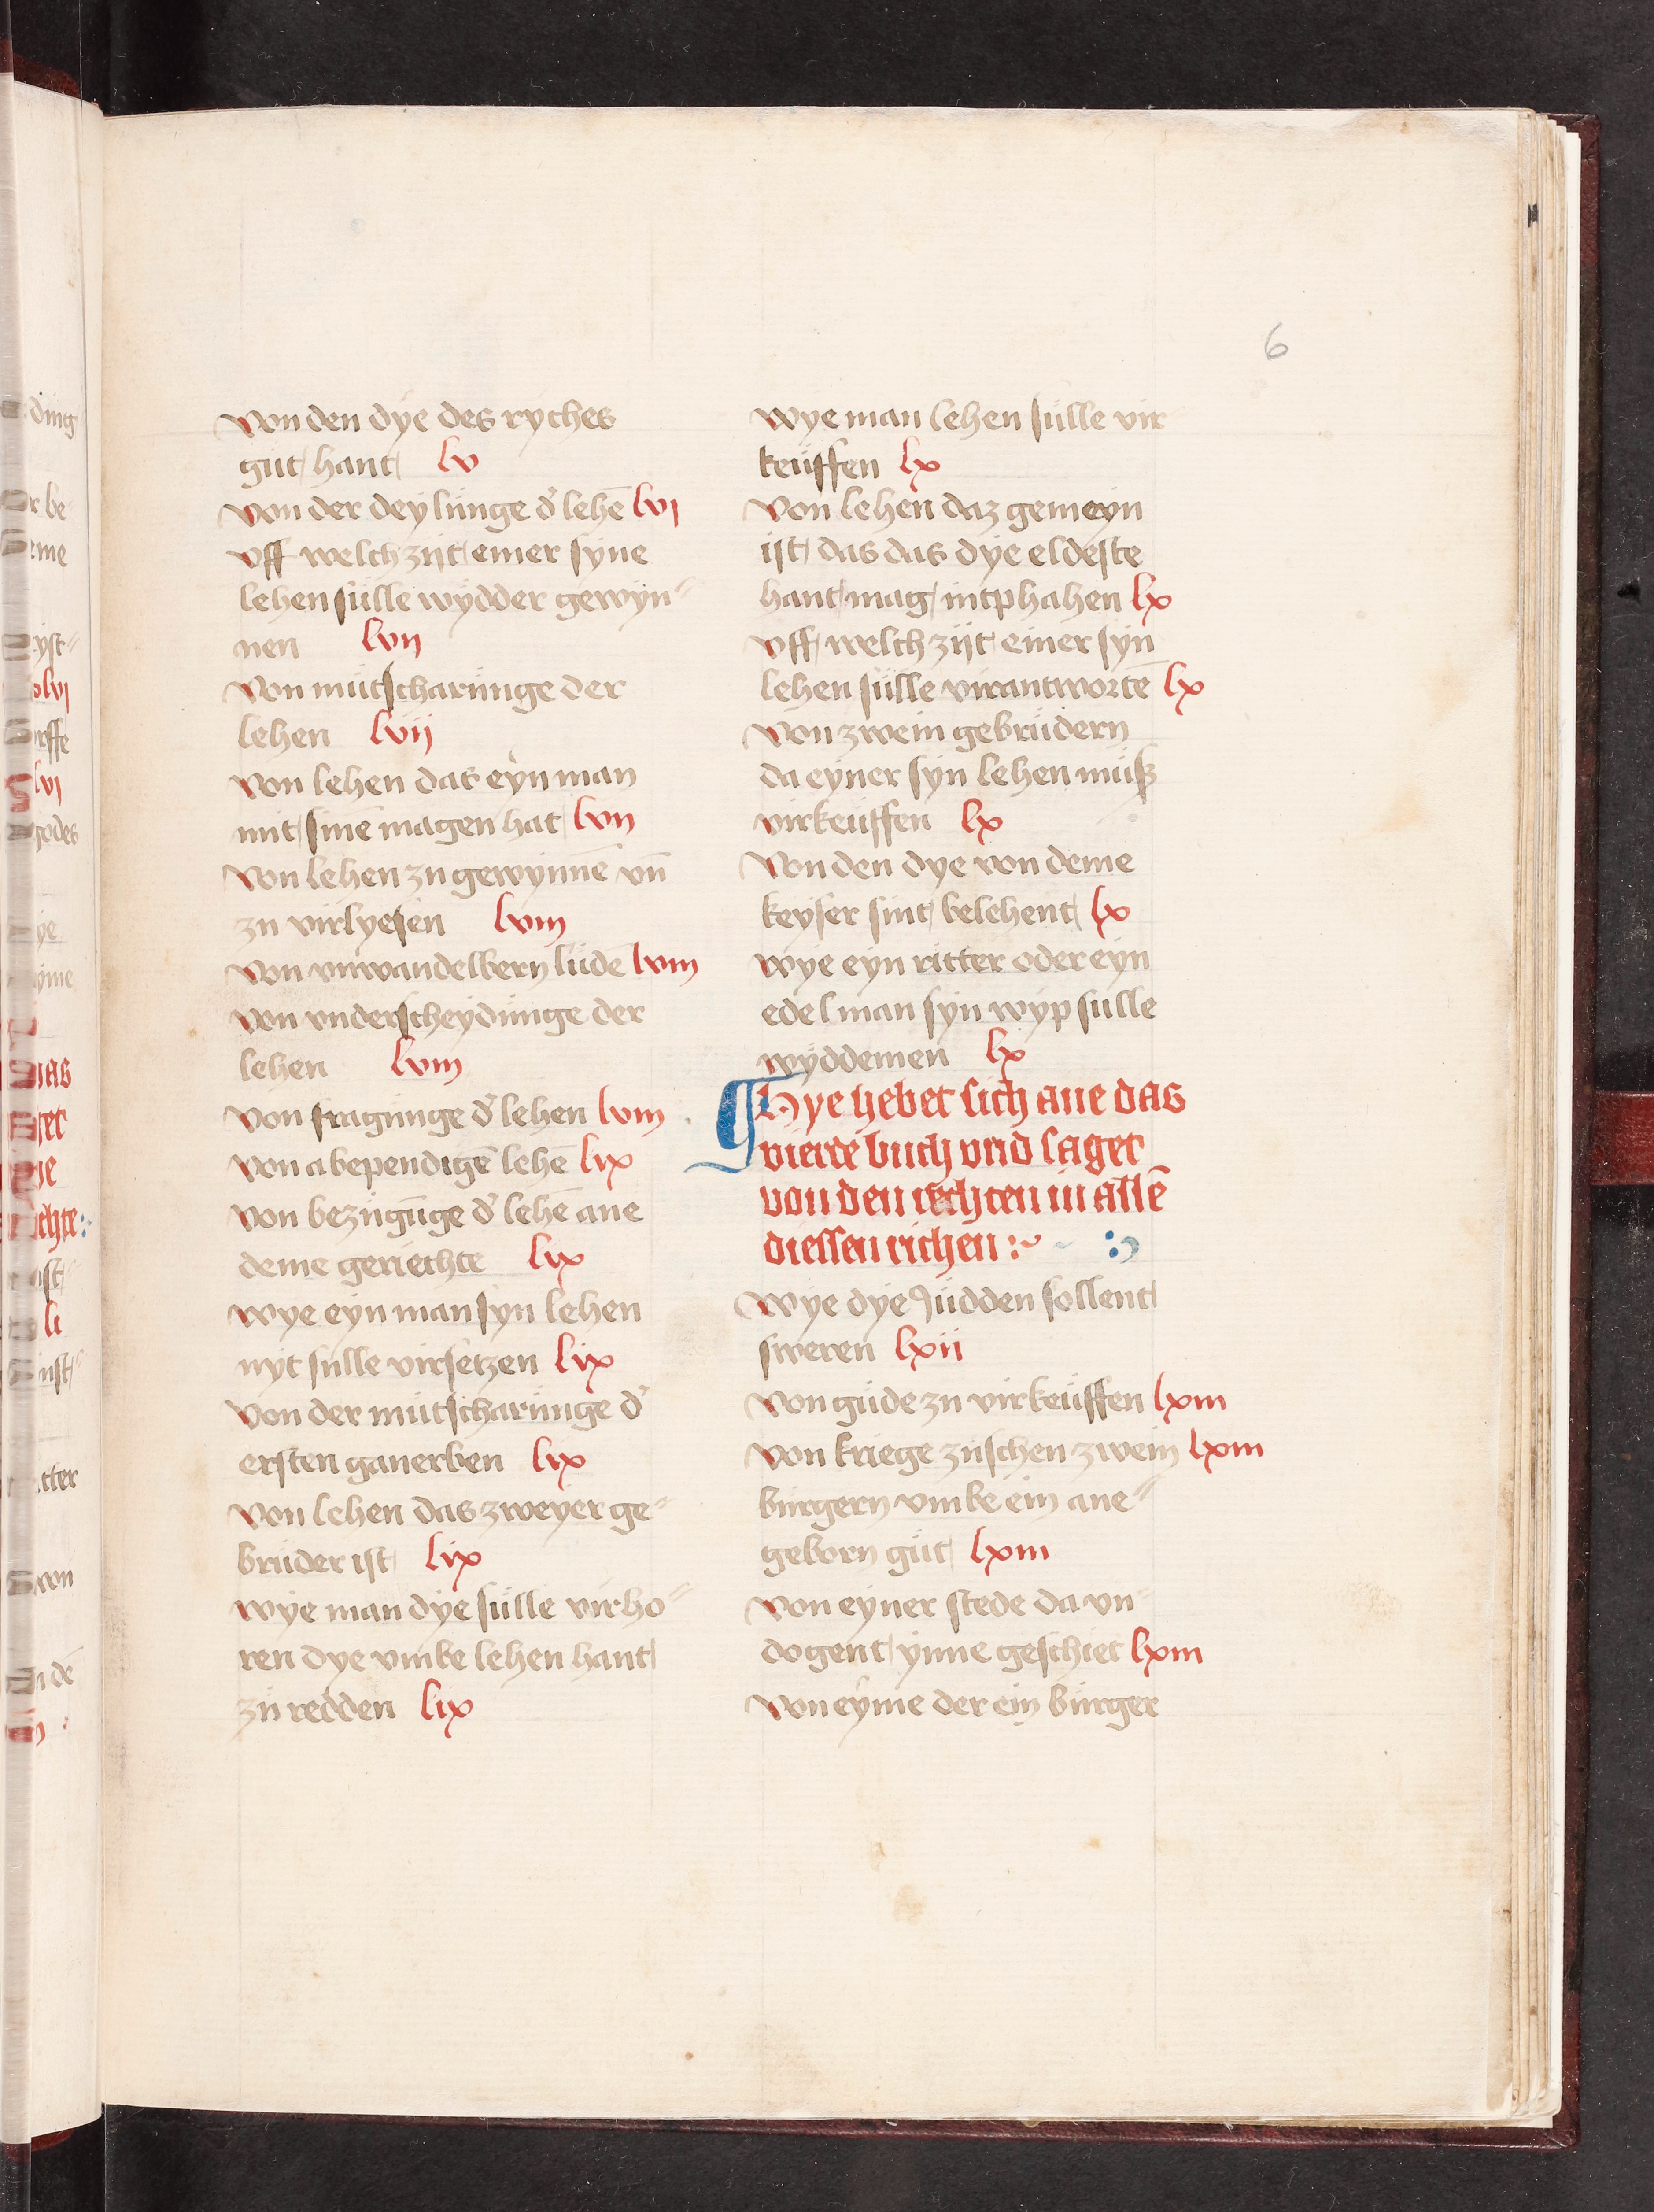 6
von den dye des ryches
gut hant lv
von der deylünge d' lehē lvi
vff welch zijt einer syne
lehen sülle wydder gewyn-
nen lvij
von mütscharünge der
lehen lvij
von lehen das eyn man
mit sinē magen hat lvij
von lehen zu gewynnē vn̄
zu virlyesen lviij
von vnwandelbern lüdē lviij
von vnderscheydünge der
lehen lviij
von fragünge d' lehen lviij
von abependigē lehē lix
von bezügūge d' lehē ane
deme geriechte lix
wye eyn man syn lehen
nyt sülle virsetzen lix
von der mütscharünge d'
ersten ganerben lix
von lehen das zweyer ge-
brüder ist lix
wye man dye sülle virho-
ren dye vmbe lehen hant
zü redden lix
wye man lehen sülle vir
keüffen lx
von lehen daz gemeyn
ist das das dye eldeste
hant mag intphahen lx
vff welch zijt einer syn
lehen sülle virantwortē lx
von zwein gebrüdern
da eyner syn lehen müß
virkeüffen lx
von den dye von deme
keyser sint belehent lx
wye eyn ritter oder eyn
edelman syn wyp sülle
wyddemen lx
Hye hebet sich ane das
vierde buch vnd saget
von den rechten in allē
diessen richen
wye dye Jüdden sollent
sweren lxii
von güde zu virkeüffen lxiii
von kriege züschen zwein lxiii
bürgern vmbe ein ane-
geborn güt lxiii
von eyner stede da vn-
dogent ynne geschiet lxiii
von eyme der ein bürger